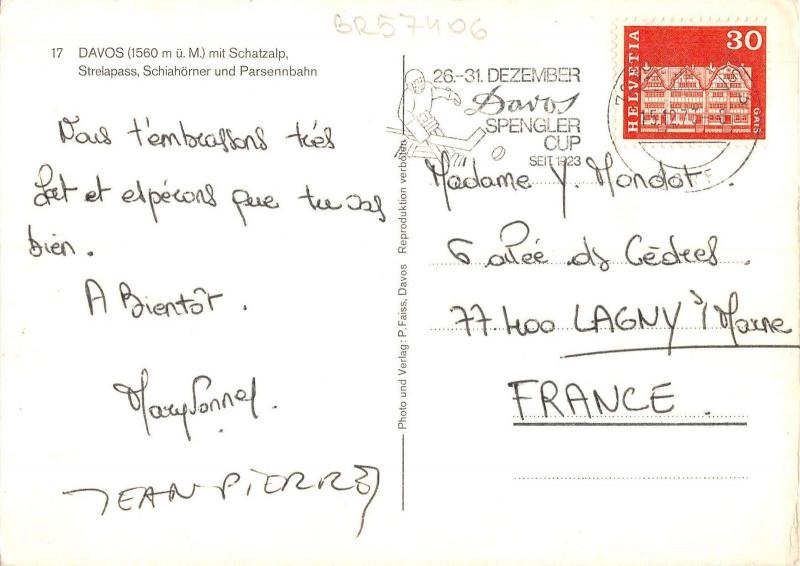 BR57406
17 DAVOS (1560 m ü. M.) mit Schatzalp,
Strelapass, Schiahörner und Parsennbahn
Nous t'embrassons très
fort et espérons que tu vas
bien.
A Bientôt.
Maryvonnet.
JEAN PIERRE
Photo und Verlag: P. Faiss, Davos Reproduktion verboten
26.-31. DEZEMBER
Davos
SPENGLER
CUP
SEIT 1923
HELVETIA
30
GAIS
Madame Y. Mondot.
6 allée ds Cèdres.
77400 LAGNY s/Marne
FRANCE.